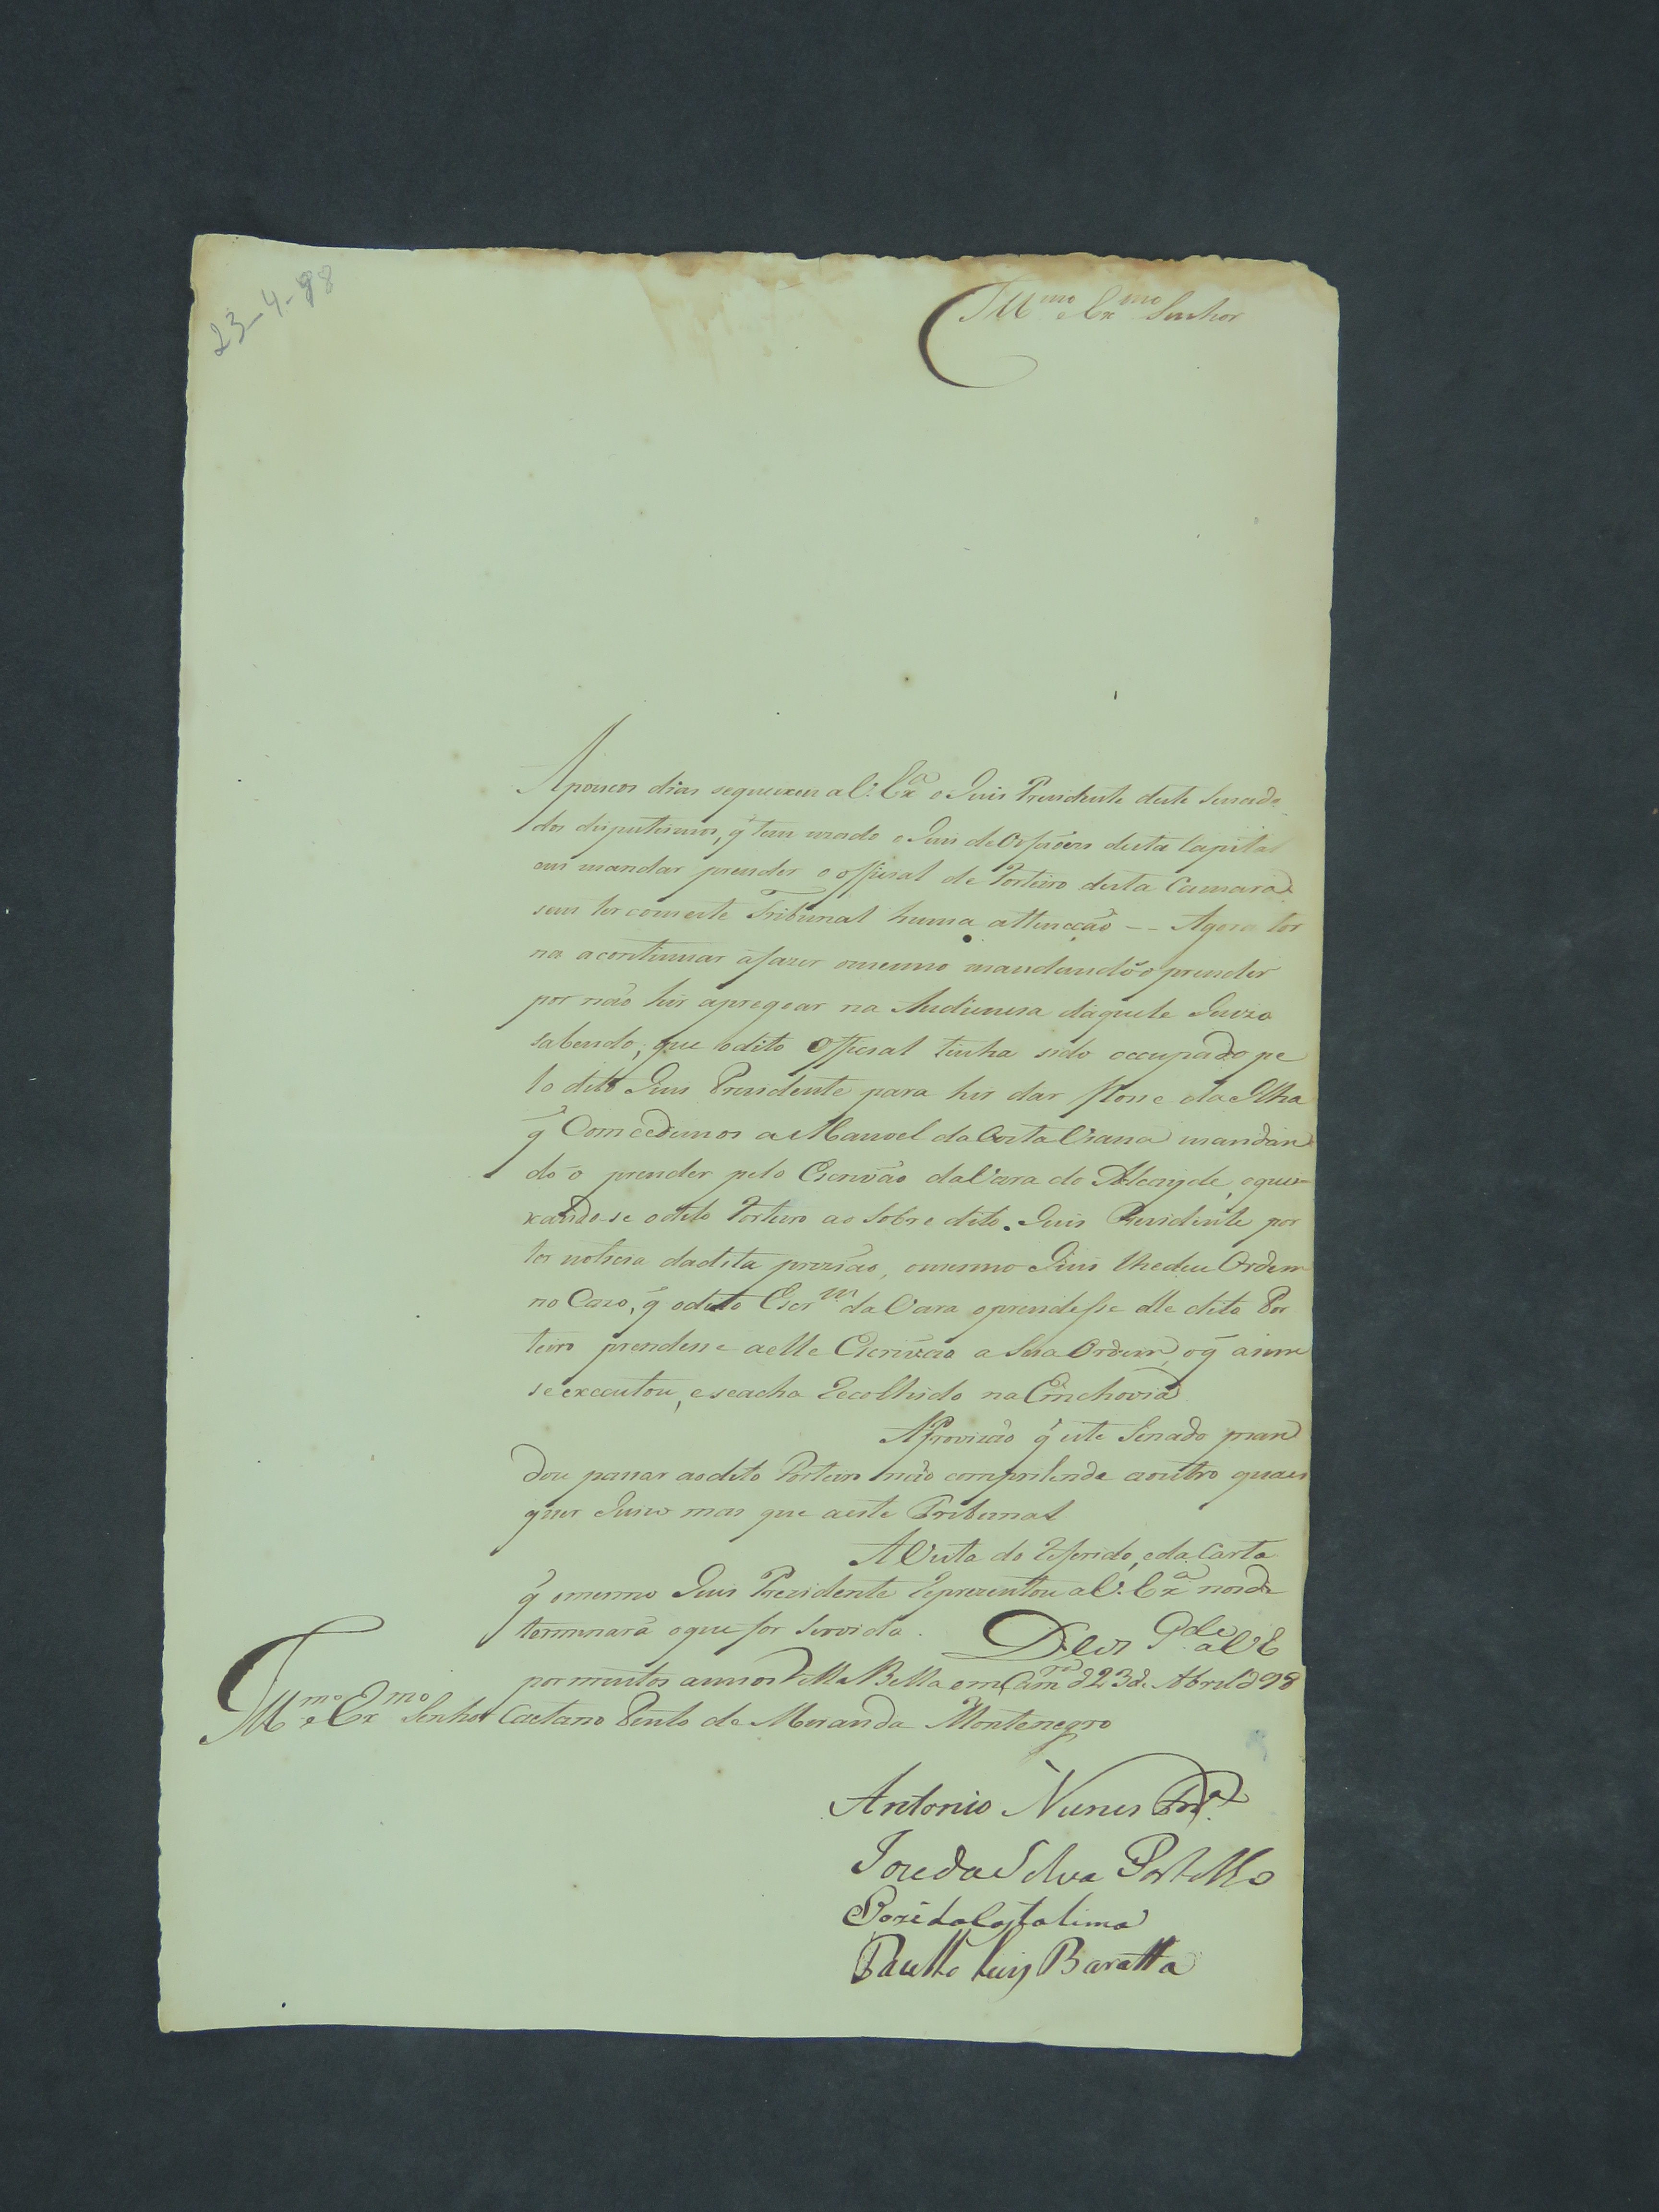 23-4-98
Ill.mo e Ex.mo Senhor
Apoucos dias sequeixou a V. Ex.a o Juis Prezidente deste Senado
dos disputismos, q̃ tem uzado o Juis de Orfãos desta Capital
em mandar prender o official de Porteiro desta Camara
sem ter com este Tribunal huma attencção -- Agora tor
na acontinuar afazer omesmo mandandóo prender
por não hir apregoar na Audiencia daquele Juizo
sabendo, que odito Official tinha sido occupado pe
lo dito Juis Prezidente para hir dar posse da Ilha
q̃ Comcedemos a Manoel da Costa Viana mandan
dó o prender pelo Escrivão da Vara do Alcayde, equei-
xando-se odito Porteiro ao sobre dito Juis Prezidente por
ter noticia dadita prizão, omesmo Juis lhedeu Ordem
no Cazo, q̃ odito Escr.m da Vara oprendesse elle dito Por
teiro prendesse aelle Escrivão a Sua Ordem, oq̃ asim
se executou, eseacha Recolhido na Enchovia
A Provizão q̃ este Senado man
dou passar aodito Porteiro não comprilende aoutro quaes
quer Juizo mas que aeste Tribunal
A Vista do Referido, eda Carta
q̃ omesmo Juis Prezidente Reprezentou a V. Ex.a nosde
terminará oque for Servido. Deos G.de a V. E
por muitos annos Villa Bella em Cam.ra d 23 de Abril d 98
Ill.mo e Ex.mo Senhor Caetano Pinto de Miranda Montenegro
Antonio Nunes
Joze da Silva Portello
Jozé da Costa Lima
Paullo Luis Baratta